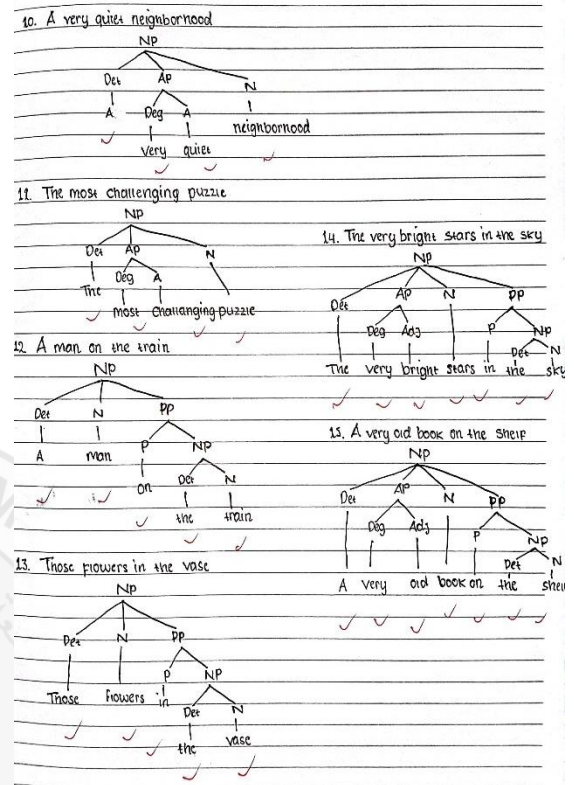 10. A very quiet neighbornood
NP
Det AP N
A Deg A neighbornood
very quiet
11. The most challenging puzzle
NP
Det AP N
The Deg A
most challanging puzzle
12 A man on the train
NP
Det N PP
A man P NP
on Det N
the train
13. Those flowers in the vase
NP
Det N PP
Those flowers P NP
in Det N
the vase
14. The very bright stars in the sky
NP
Det AP N PP
Deg Adj P NP
Det N
The very bright stars in the sky
15. A very old book on the shelf
NP
Det AP N PP
Deg Adj P NP
Det N
A very old book on the shelf